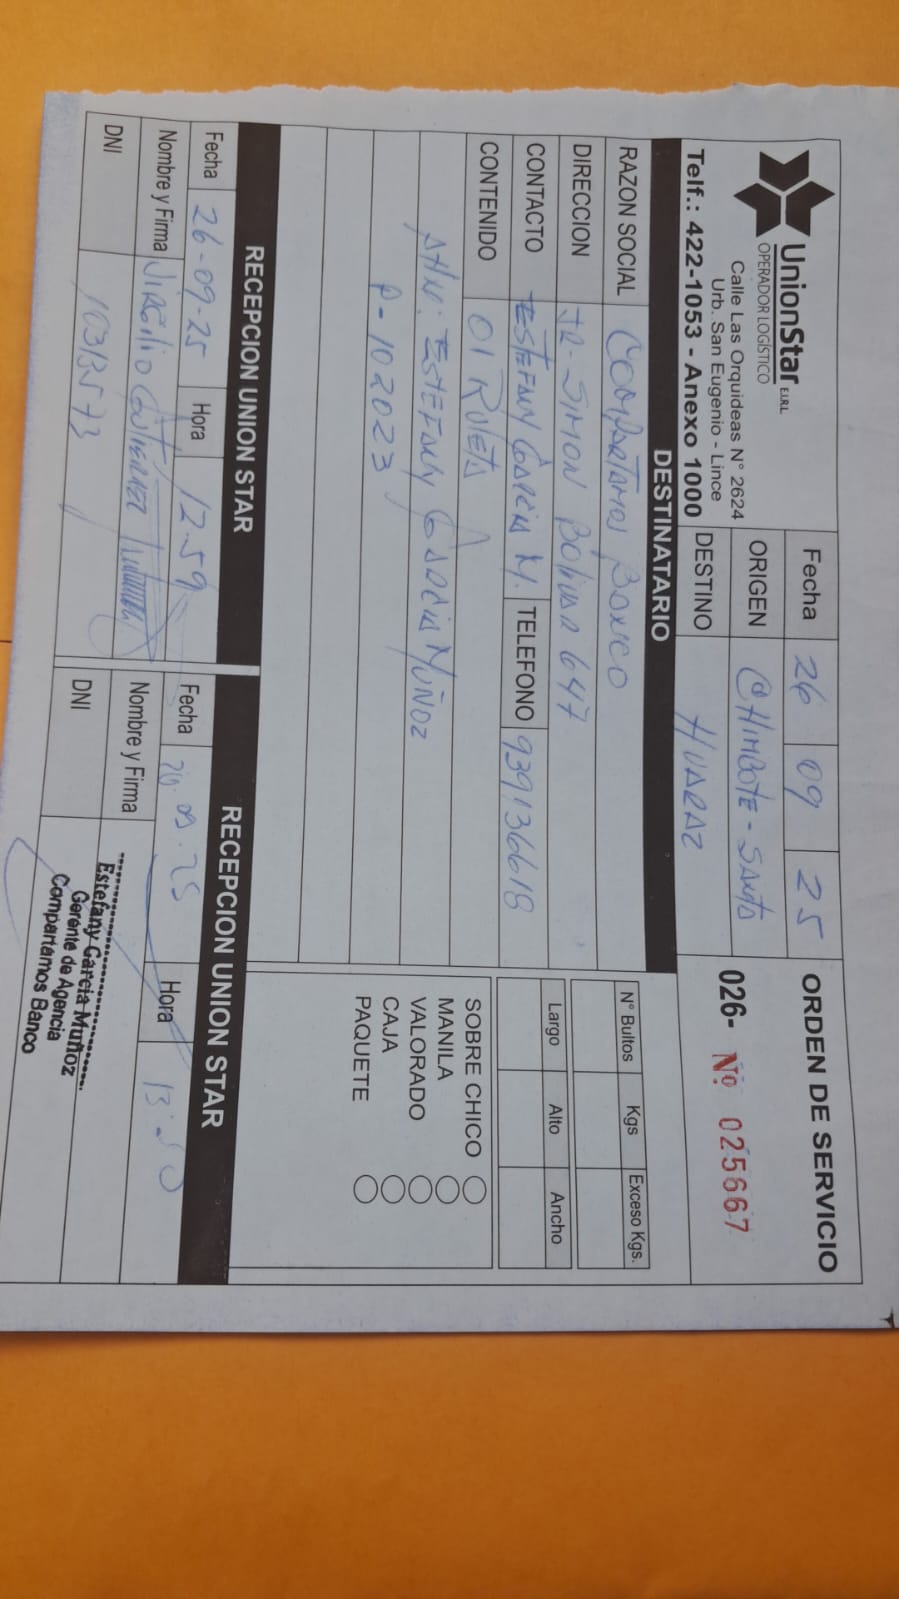 UnionStar E.I.R.L.
OPERADOR LOGÍSTICO
Calle Las Orquideas N° 2624
Urb. San Eugenio - Lince
Telf.: 422-1053 - Anexo 1000
Fecha 26 09 25
ORIGEN CHIMBOTE - SANTA
DESTINO HUARAZ
ORDEN DE SERVICIO
026- Nº 025667
DESTINATARIO
RAZON SOCIAL COMPARTAMOS BANCO
DIRECCION JR - SIMON BOLIVAR 647
CONTACTO ESTEFANY GARCIA M. TELEFONO 939136618
CONTENIDO 01 RULETA
Attn: ESTEFANY GARCIA MUÑOZ
P-102023
N° Bultos Kgs Exceso Kgs.
Largo Alto Ancho
SOBRE CHICO
MANILA
VALORADO
CAJA
PAQUETE
RECEPCION UNION STAR
Fecha 26-09-25 Hora 12:59
Nombre y Firma VIRGILIO GUTIERREZ
DNI
RECEPCION UNION STAR
Fecha Hora
Nombre y Firma
DNI
Estefany Garcia Muñoz
Gerente de Agencia
Compartamos Banco